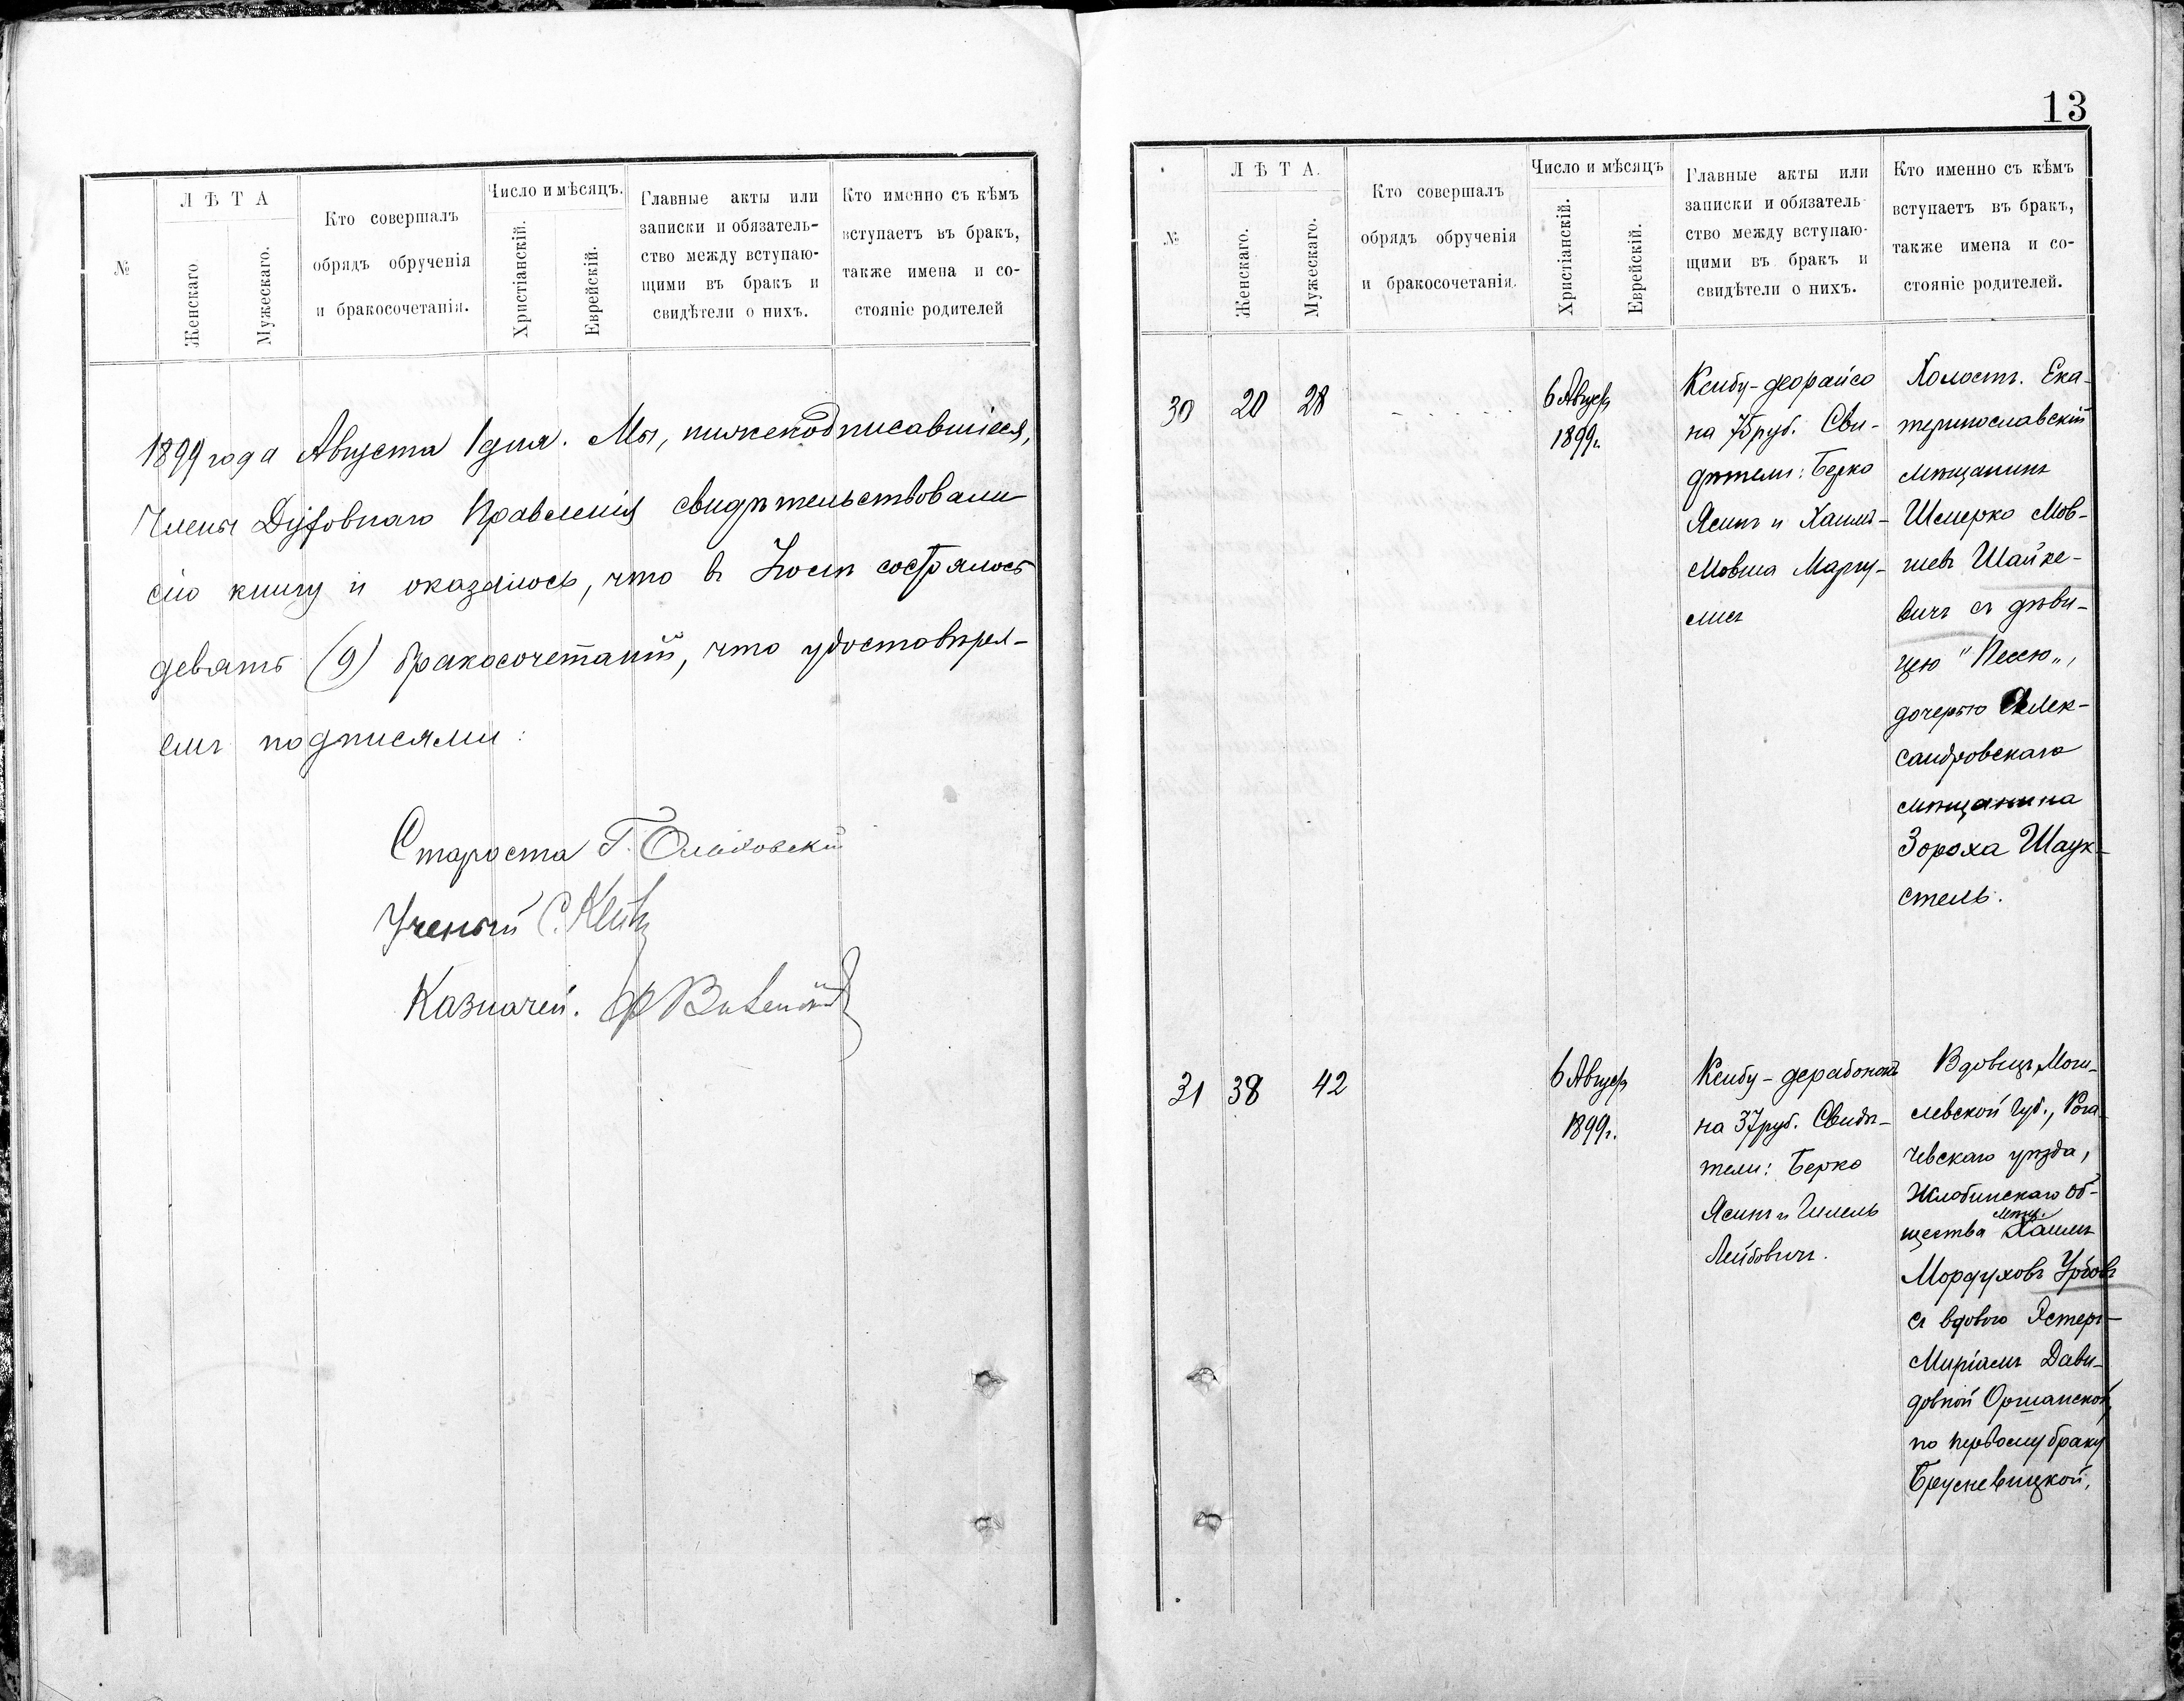 №
ЛѢТА
Женскаго
Мужескаго.
Кто совершалъ
обрядъ обрученія
и бракосочетанія.
Число и мѣсяцъ.
Христіанскій.
Еврейскій.
Главные акты или
записки и обязатель-
ство между вступаю-
щими въ бракъ и
свидѣтели о нихъ.
Кто именно съ кѣмъ
вступаетъ въ бракъ,
также имена и со-
стояніе родителей
1899 года Августа 1 дня. Мы, нижеподписавшіеся,
Члены Духовнаго Правленія свидѣтельствовали
сію книгу и оказалось, что въ Іюлѣ состоялось
девять (9) бракосочетаній, что удостовѣря-
емъ подписями:
Староста Г.
Ученый С.
Казначей.
13
№
ЛѢТА.
Женскаго.
Мужескаго.
Кто совершалъ
обрядъ обрученія
и бракосочетанія.
Число и мѣсяцъ
Христіанскій.
Еврейскій.
Главные акты или
записки и обязатель-
ство между вступаю-
щими въ бракъ и
свидѣтели о нихъ.
Кто именно съ кѣмъ
вступаетъ въ бракъ,
также имена и со-
стояніе родителей.
30 20 28
6 Августа
1899г.
Ксибу-деорайсо
на 75 руб. Сви-
дѣтели: Берко
Ясинъ и Хаимъ-
Мовша Маргу-
лисъ
Холостъ. Ека-
теринославскій
мѣщанинъ
Шмерко Мов-
шевъ Шайке-
вичъ съ дѣви-
цею "Песею",
дочерью Алек-
сандровскаго
мѣщанина
Зороха Шаук-
стель.
31 38 42
6 Августа
1899г.
Ксибу-дерабононъ
на 37 руб. Свидѣ-
тели: Берко
Ясинъ и Гилель
Лейбовичъ.
Вдовецъ, Моги-
левской Губ., Рога-
чевскаго уѣзда,
Жлобинскаго Об-
щества мѣщ. Хаимъ
Мордуховъ
съ вдовою Эстеръ-
Миріамъ Дави-
довной Оршанской,
по первому браку
Брусневицкой,